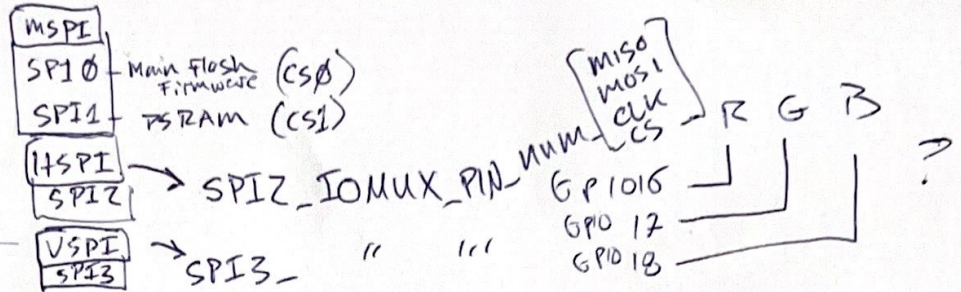 MSPI
SPI0 - Main Flash Firmware (CS0)
SPI1 - PSRAM (CS1)
HSPI
SPI2
SPI2_IOMUX_PIN_NUM_
MISO
MOSI
CLK
CS
R G B
GPIO16
GPIO 17
GPIO 18
?
VSPI
SPI3
SPI3_ " "'